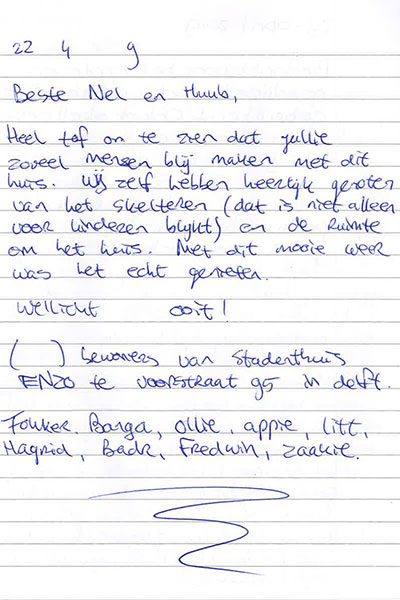 22 4 9
Beste Nel en Huub,
Heel tof om te zien dat jullie
zoveel mensen blij maken met dit
huis. Wij zelf hebben heerlijk genoten
van het skelteren (dat is niet alleen
voor kinderen blijkt) en de ruimte
om het huis. Met dit mooie weer
was het echt genieten.
Wellicht ooit!
( ) bewoners van studenthuis
ENZO te voorstraat 95 in delft.
Fouker, Banga, Ollie, appie, Litt,
Hagrid, Badr, Fredwin, zaakie.